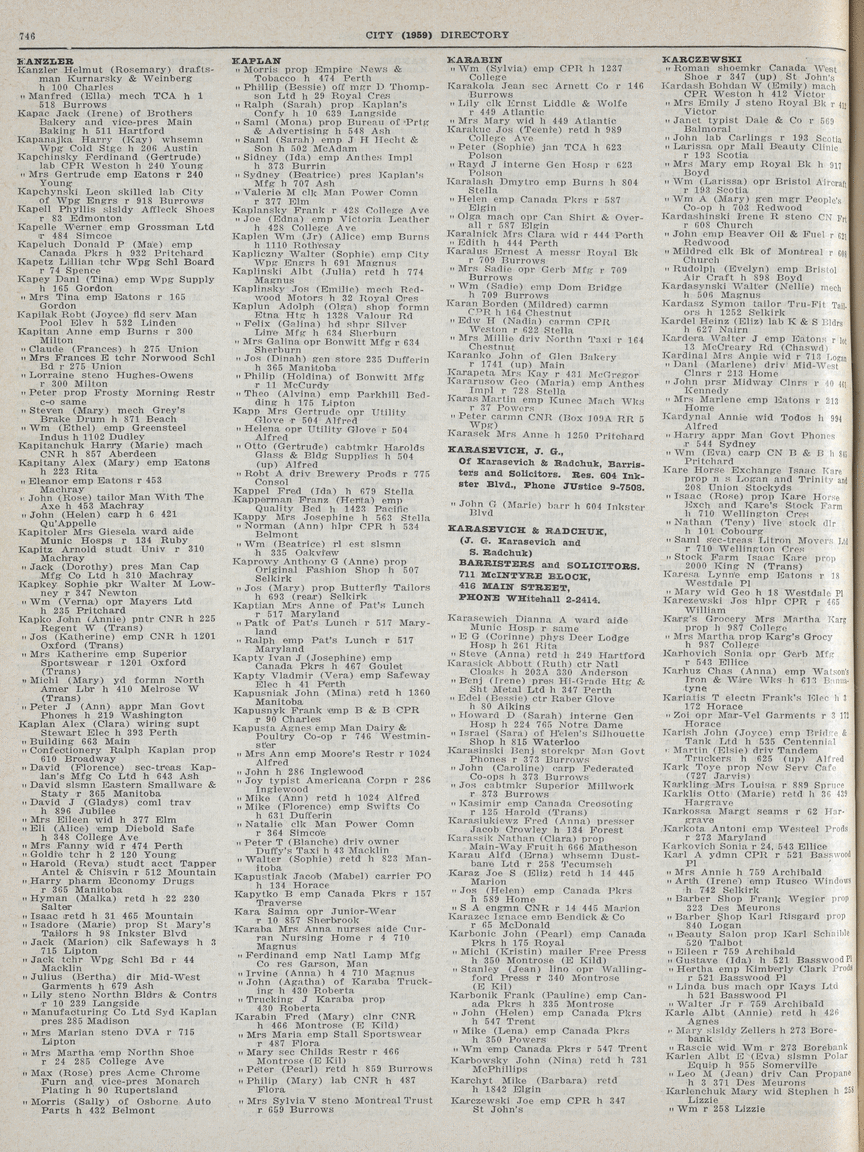 746
CITY (1959) DIRECTORY
KANZLER
Kanzler Helmut (Rosemary) drafts-
man Kurnarsky & Weinberg
h 100 Charles
" Manfred (Ella) mech TCA h 1
518 Burrows
Kapac Jack (Irene) of Brothers
Bakery and vice-pres Main
Baking h 511 Hartford
Kapanajka Harry (Kay) whsemn
Wpg Cold Stge h 206 Austin
Kapchinsky Ferdinand (Gertrude)
lab CPR Weston h 240 Young
" Mrs Gertrude emp Eatons r 240
Young
Kapchynski Leon skilled lab City
of Wpg Engrs r 918 Burrows
Kapell Phyllis slsldy Affleck Shoes
r 83 Edmonton
Kapelle Werner emp Grossman Ltd
r 484 Simcoe
Kapeluch Donald P (Mae) emp
Canada Pkrs h 932 Pritchard
Kapetz Lillian tchr Wpg Schl Board
r 74 Spence
Kapey Danl (Tina) emp Wpg Supply
h 165 Gordon
" Mrs Tina emp Eatons r 165
Gordon
Kapilak Robt (Joyce) fld serv Man
Pool Elev h 532 Linden
Kapitan Anne emp Burns r 300
Milton
" Claude (Frances) h 275 Union
" Mrs Frances E tchr Norwood Schl
Bd r 275 Union
" Lorraine steno Hughes-Owens
r 300 Milton
" Peter prop Frosty Morning Restr
c-o same
" Steven (Mary) mech Grey's
Brake Drum h 871 Beach
" Wm (Ethel) emp Greensteel
Indus h 1102 Dudley
Kapitanchuk Harry (Marie) mach
CNR h 857 Aberdeen
Kapitany Alex (Mary) emp Eatons
h 223 Rita
" Eleanor emp Eatons r 453
Machray
" John (Rose) tailor Man With The
Axe h 453 Machray
" John (Helen) carp h 6 421
Qu'Appelle
Kapitoler Mrs Giesela ward aide
Munic Hosps r 134 Ruby
Kapitz Arnold studt Univ r 310
Machray
" Jack (Dorothy) pres Man Cap
Mfg Co Ltd h 310 Machray
Kapkey Sophie pkr Walter M Low-
ney r 347 Newton
" Wm (Verna) opr Mayers Ltd
h 235 Pritchard
Kapko John (Annie) pntr CNR h 225
Regent W (Trans)
" Jos (Katherine) emp CNR h 1201
Oxford (Trans)
" Mrs Katherine emp Superior
Sportswear r 1201 Oxford
(Trans)
" Michl (Mary) yd formn North
Amer Lbr h 410 Melrose W
(Trans)
" Peter J (Ann) appr Man Govt
Phones h 219 Washington
Kaplan Alex (Clara) wiring supt
Stewart Elec h 393 Perth
" Building 663 Main
" Confectionery Ralph Kaplan prop
610 Broadway
" David (Florence) sec-treas Kap-
lan's Mfg Co Ltd h 643 Ash
" David slsmn Eastern Smallware &
Staty r 365 Manitoba
" David J (Gladys) coml trav
h 896 Jubilee
" Mrs Eileen wid h 377 Elm
" Eli (Alice) emp Diebold Safe
h 348 College Ave
" Mrs Fanny wid r 474 Perth
" Goldie tchr h 2 120 Young
" Harold (Reva) studt acct Tapper
Antel & Chisvin r 512 Mountain
" Harry pharm Economy Drugs
r 365 Manitoba
" Hyman (Malka) retd h 22 230
Salter
" Isaac retd h 31 465 Mountain
" Isadore (Marie) prop St Mary's
Tailors h 98 Inkster Blvd
" Jack (Marion) clk Safeways h 3
715 Lipton
" Jack tchr Wpg Schl Bd r 44
Macklin
" Julius (Bertha) dir Mid-West
Garments h 679 Ash
" Lily steno Northn Bldrs & Contrs
r 10 239 Langside
" Manufacturing Co Ltd Syd Kaplan
pres 285 Madison
" Mrs Marian steno DVA r 715
Lipton
" Mrs Martha emp Northn Shoe
r 24 285 College Ave
" Max (Rose) pres Acme Chrome
Furn and vice-pres Monarch
Plating h 90 Rupertsland
" Morris (Sally) of Osborne Auto
Parts h 432 Belmont
KAPLAN
" Morris prop Empire News &
Tobacco h 474 Perth
" Phillip (Bessie) off mgr D Thomp-
son Ltd h 29 Royal Cres
" Ralph (Sarah) prop Kaplan's
Confy h 10 639 Langside
" Saml (Mona) prop Bureau of Prtg
& Advertising h 548 Ash
" Saml (Sarah) emp J H Hecht &
Son h 502 McAdam
" Sidney (Ida) emp Anthes Impl
h 373 Burrin
" Sydney (Beatrice) pres Kaplan's
Mfg h 707 Ash
" Valerie M clk Man Power Comn
r 377 Elm
Kaplansky Frank r 428 College Ave
" Joe (Edna) emp Victoria Leather
h 428 College Ave
Kaplen Wm (Jr) (Alice) emp Burns
h 1110 Rothesay
Kapliczny Walter (Sophie) emp City
Wpg Engrs h 691 Magnus
Kaplinski Albt (Julia) retd h 774
Magnus
Kaplinsky Jos (Emilie) mech Red-
wood Motors h 32 Royal Cres
Kaplun Adolph (Olga) shop formn
Etna Htg h 1328 Valour Rd
" Felix (Galina) hd shpr Silver
Line Mfg h 634 Sherburn
" Mrs Galina opr Bonwitt Mfg r 634
Sherburn
" Jos (Dinah) gen store 235 Dufferin
h 365 Manitoba
" Philip (Holdina) of Bonwitt Mfg
r 11 McCurdy
" Theo (Alvina) emp Parkhill Bed-
ding h 175 Lipton
Kapp Mrs Gertrude opr Utility
Glove r 504 Alfred
" Helena opr Utility Glove r 504
Alfred
" Otto (Gertrude) cabtmkr Harolds
Glass & Bldg Supplies h 504
(up) Alfred
" Robt A driv Brewery Prods r 775
Consol
Kappel Fred (Ida) h 679 Stella
Kapperman Franz (Herta) emp
Quality Bed h 1423 Pacific
Kappy Mrs Josephine h 563 Stella
" Norman (Ann) hlpr CPR h 534
Belmont
" Wm (Beatrice) rl est slsmn
h 335 Oakview
Kaprowy Anthony G (Anne) prop
Original Fashion Shop h 507
Selkirk
" Jos (Mary) prop Butterfly Tailors
h 693 (rear) Selkirk
Kaptian Mrs Anne of Pat's Lunch
r 517 Maryland
" Patk of Pat's Lunch r 517 Mary-
land
" Ralph emp Pat's Lunch r 517
Maryland
Kapty Ivan J (Josephine) emp
Canada Pkrs h 467 Goulet
Kapty Vladmir (Vera) emp Safeway
Elec h 41 Perth
Kapusniak John (Mina) retd h 1360
Manitoba
Kapusnyk Frank emp B & B CPR
r 90 Charles
Kapusta Agnes emp Man Dairy &
Poultry Co-op r 746 Westmin-
ster
" Mrs Ann emp Moore's Restr r 1024
Alfred
" John h 286 Inglewood
" Joy typist Americana Corpn r 286
Inglewood
" Mike (Ann) retd h 1024 Alfred
" Mike (Florence) emp Swifts Co
h 631 Dufferin
" Natalie clk Man Power Comn
r 364 Simcoe
" Peter T (Blanche) driv owner
Duffy's Taxi h 43 Macklin
" Walter (Sophie) retd h 823 Man-
itoba
Kapustiak Jacob (Mabel) carrier PO
h 134 Horace
Kapytko B emp Canada Pkrs r 157
Traverse
Kara Saima opr Junior-Wear
r 10 857 Sherbrook
Karaba Mrs Anna nurses aide Cur-
ran Nursing Home r 4 710
Magnus
" Ferdinand emp Natl Lamp Mfg
Co res Garson, Man
" Irvine (Anna) h 4 710 Magnus
" John (Agatha) of Karaba Truck-
ing h 430 Roberta
" Trucking J Karaba prop
430 Roberta
Karabin Fred (Mary) clnr CNR
h 466 Montrose (E Kild)
" Mrs Maria emp Stall Sportswear
r 487 Flora
" Mary sec Childs Restr r 466
Montrose (E Kil)
" Peter (Pearl) retd h 859 Burrows
" Philip (Mary) lab CNR h 487
Flora
" Mrs Sylvia V steno Montreal Trust
r 659 Burrows
KARABIN
" Wm (Sylvia) emp CPR h 1237
College
Karakola Jean sec Arnett Co r 146
Burrows
" Lily clk Ernst Liddle & Wolfe
r 449 Atlantic
" Mrs Mary wid h 449 Atlantic
Karakuc Jos (Teenie) retd h 989
College Ave
" Peter (Sophie) jan TCA h 623
Polson
" Rayd J Interne Gen Hosp r 623
Polson
Karalash Dmytro emp Burns h 804
Stella
" Helen emp Canada Pkrs r 587
Elgin
" Olga mach opr Can Shirt & Over-
all r 587 Elgin
Karalnick Mrs Clara wid r 444 Perth
" Edith h 444 Perth
Karalus Ernest A messr Royal Bk
r 709 Burrows
" Mrs Sadie opr Gerb Mfg r 709
Burrows
" Wm (Sadie) emp Dom Bridge
h 709 Burrows
Karan Borden (Mildred) carmn
CPR h 164 Chestnut
" Edw H (Nadia) carmn CPR
Weston r 622 Stella
" Mrs Millie driv Northn Taxi r 164
Chestnut
Karanko John of Glen Bakery
r 1741 (up) Main
Karapeta Mrs Kay r 431 McGregor
Kararusow Geo (Maria) emp Anthes
Impl r 728 Stella
Karas Martin emp Kunec Mach Wks
r 37 Powers
" Peter carmn CNR (Box 109A RR 5
Wpg)
Karasek Mrs Anne h 1250 Pritchard
KARASEVICH, J. G.,
Of Karasevich & Radchuk, Barris-
ters and Solicitors. Res. 604 Ink-
ster Blvd., Phone JUstice 9-7508.
" John G (Marie) barr h 604 Inkster
Blvd
KARASEVICH & RADCHUK,
(J. G. Karasevich and
S. Radchuk)
BARRISTERS and SOLICITORS.
711 McINTYRE BLOCK,
416 MAIN STREET,
PHONE WHitehall 2-2414.
Karasewich Dianna A ward aide
Munic Hosp r same
" E G (Corinne) phys Deer Lodge
Hosp h 261 Rita
" Steve (Anna) retd h 249 Hartford
Karasick Abbott (Ruth) ctr Natl
Cloaks h 203A 330 Anderson
" Benj (Irene) pres Hi-Grade Htg &
Sht Metal Ltd h 347 Perth
" Edel (Bessie) ctr Raber Glove
h 80 Aikins
" Howard D (Sarah) interne Gen
Hosp h 224 765 Notre Dame
" Israel (Sara) of Helen's Silhouette
Shop h 815 Waterloo
Karasinski Benj storekpr Man Govt
Phones r 373 Burrows
" John (Caroline) carp Federated
Co-ops h 373 Burrows
" Jos cabtmkr Superior Millwork
r 373 Burrows
" Kasimir emp Canada Creosoting
r 125 Harold (Trans)
Karasiukiewz Fred (Anna) presser
Jacob Crowley h 134 Forest
Karassik Nathan (Clara) prop
Main-Way Fruit h 666 Matheson
Karau Alfd (Erna) whsemn Dust-
bane Ltd r 258 Tecumseh
Karaz Joe S (Eliz) retd h 14 445
Marion
" Jos (Helen) emp Canada Pkrs
h 589 Home
" S A engmn CNR r 14 445 Marion
Karazec Ignace emp Bendick & Co
r 65 McDonald
Karbonic John (Pearl) emp Canada
Pkrs h 175 Royal
" Michl (Kristin) mailer Free Press
h 350 Montrose (E Kild)
" Stanley (Jean) lino opr Walling-
ford Press r 340 Montrose
(E Kil)
Karbonik Frank (Pauline) emp Can-
ada Pkrs h 335 Montrose
" John (Helen) emp Canada Pkrs
h 547 Trent
" Mike (Lena) emp Canada Pkrs
h 350 Powers
" Wm emp Canada Pkrs r 547 Trent
Karbowsky John (Nina) retd h 731
McPhillips
Karchyt Mike (Barbara) retd
h 1842 Elgin
Karczewski Joe emp CPR h 347
St John's
KARCZEWSKI
" Roman shoemkr Canada West
Shoe r 347 (up) St John's
Kardash Bohdan W (Emily) mach
CPR Weston h 412 Victor
" Mrs Emily J steno Royal Bk r
Victor
" Janet typist Dale & Co r 569
Balmoral
" John lab Carlings r 193 Scotia
" Larissa opr Mall Beauty Clinic
r 193 Scotia
" Mrs Mary emp Royal Bk h 917
Boyd
" Wm (Larissa) opr Bristol Aircraft
r 193 Scotia
" Wm A (Mary) gen mgr People's
Co-op h 703 Redwood
Kardashinski Irene R steno CN Frt
r 608 Church
" John emp Beaver Oil & Fuel r
Redwood
" Mildred clk Bk of Montreal r
Church
" Rudolph (Evelyn) emp Bristol
Air Craft h 898 Boyd
Kardasynski Walter (Nellie) mech
h 506 Magnus
Kardasz Symon tailor Tru-Fit Tail-
ors h 1252 Selkirk
Kardel Heinz (Eliz) lab K & S Bldrs
h 627 Nairn
Kardera Walter J emp Eatons r
13 McCreary Rd (Chaswd)
Kardinal Mrs Annie wid r 713 Logan
" Danl (Marlene) driv Mid-West
Clnrs r 213 Home
" John prsr Midway Clnrs r 40
Kennedy
" Mrs Marlene emp Eatons r 213
Home
Kardynal Annie wid Todos h 994
Alfred
" Harry appr Man Govt Phones
r 544 Sydney
" Wm (Eva) carp CN B & B h
Pritchard
Kare Horse Exchange Isaac Kare
prop n s Logan and Trinity and
208 Union Stockyds
" Isaac (Rose) prop Kare Horse
Exch and Kare's Stock Farm
h 710 Wellington Cres
" Nathan (Teny) live stock dlr
h 101 Cobourg
" Saml sec-treas Litron Movers Ltd
r 710 Wellington Cres
" Stock Farm Isaac Kare prop
2000 King N (Trans)
Karesa Lynne emp Eatons r 18
Westdale Pl
" Mary wid Geo h 18 Westdale Pl
Karezewski Jos hlpr CPR r 465
William
Karg's Grocery Mrs Martha Karg
prop h 987 College
" Mrs Martha prop Karg's Grocy
h 987 College
Karhovich Sonia opr Gerb Mfg
r 543 Ellice
Karhuz Chas (Anna) emp Watson's
Iron & Wire Wks h 613 Bunna-
tyne
Kariatis T electn Frank's Elec h
172 Horace
" Zoi opr Mar-Vel Garments r 3 172
Horace
Karish John (Joyce) emp Bridge &
Tank Ltd h 535 Centennial
" Martin (Elsie) driv Tandem
Truckers h 625 (up) Alfred
Kark Toye prop New Serv Cafe
(727 Jarvis)
Karkling Mrs Louisa r 889 Spruce
Karklis Otto (Marie) retd h 36 439
Hargrave
Karkossa Margt seams r 62 Har-
grave
Karkota Antoni emp Westeel Prods
r 273 Maryland
Karkovich Sonia r 24, 543 Ellice
Karl A ydmn CPR r 521 Basswood
Pl
" Mrs Annie h 759 Archibald
" Arth (Irene) emp Rusco Windows
h 742 Selkirk
" Barber Shop Frank Wegier prop
323 Des Meurons
" Barber Shop Karl Risgard prop
840 Logan
" Beauty Salon prop Karl Schaible
520 Talbot
" Eileen r 759 Archibald
" Gustave (Ida) h 521 Basswood Pl
" Hertha emp Kimberly Clark Prods
r 521 Basswood Pl
" Linda bus mach opr Kays Ltd
h 521 Basswood Pl
" Walter Jr r 759 Archibald
Karle Albt (Annie) retd h 426
Agnes
" Mary slsldy Zellers h 273 Bore-
bank
" Rascie wid Wm r 273 Borebank
Karlen Albt E (Eva) slsmn Polar
Equip h 955 Somerville
" Leo M (Jean) driv Can Propane
h 3 371 Des Meurons
Karlenchuk Mary wid Stephen h 258
Lizzie
" Wm r 258 Lizzie